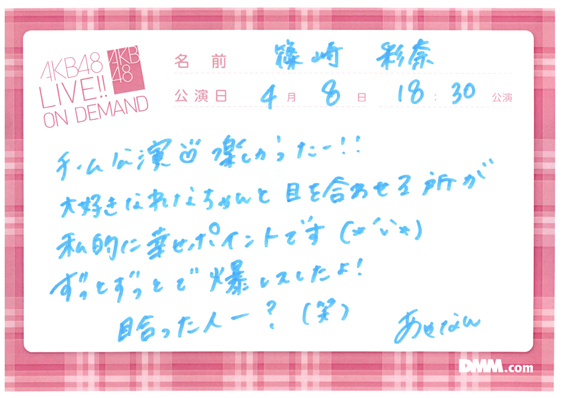 AKB48
LIVE!!
ON DEMAND
AKB
48
名前 篠崎 彩奈
公演日 4月8日 18:30公演
チーム公演 楽しかったー!!
大好きなれなちゃんと目を合わせる所が
私的に幸せポイントです(*´ω`*)
ずっとずっとで爆レスしたよ!
目合った人ー?(笑)
あやなん
DMM.com